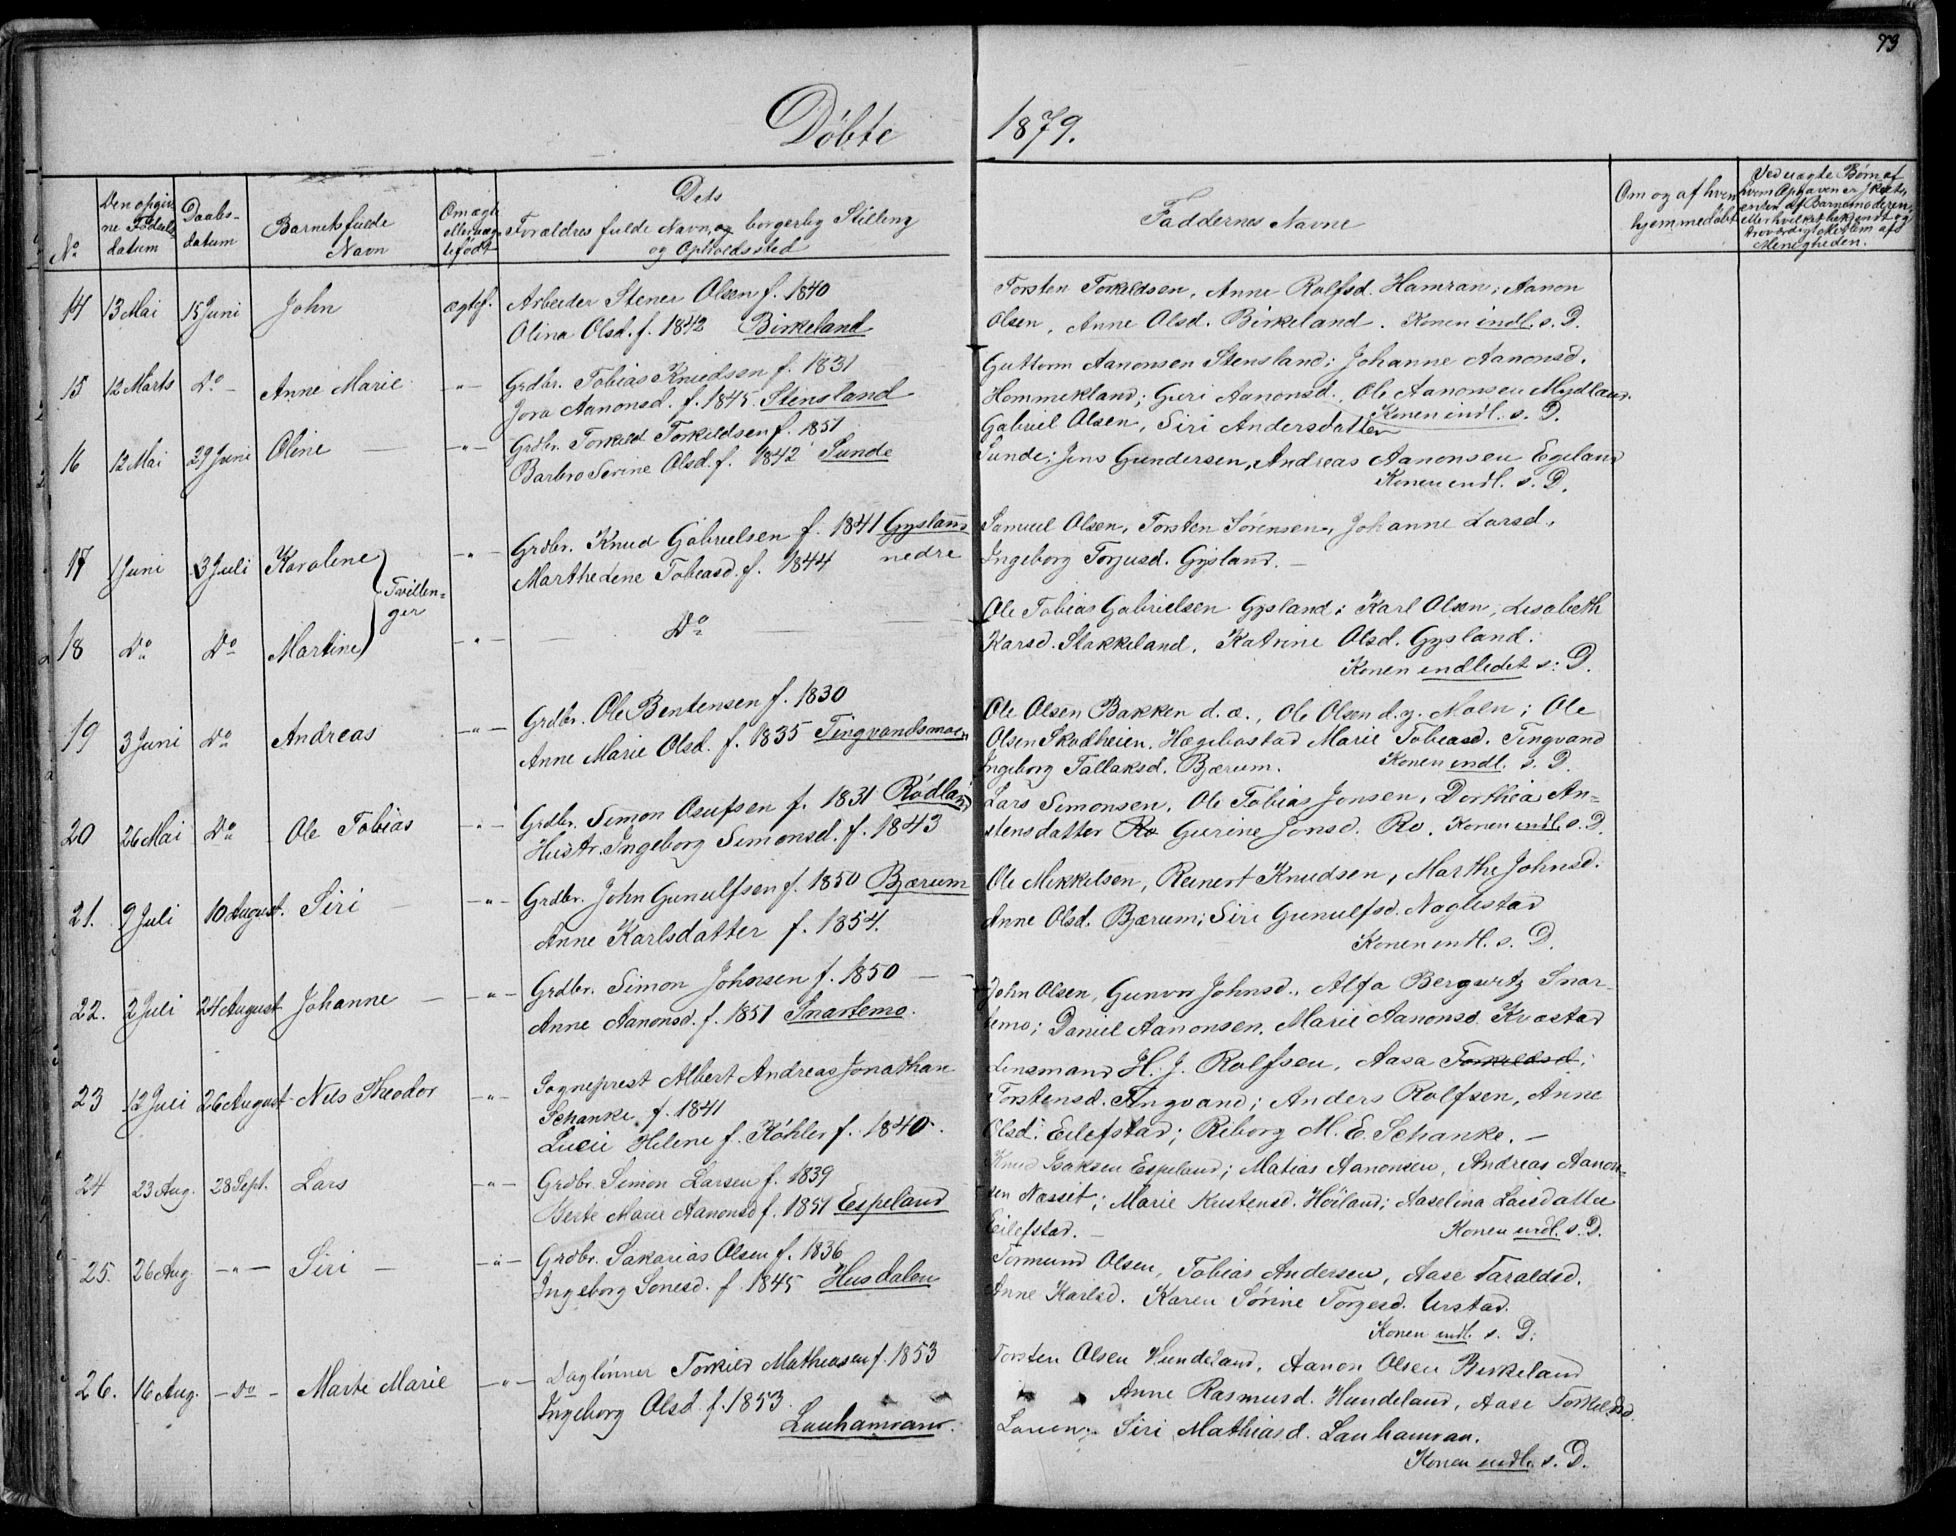 73
Döbte 1879.
No
Den opgiv-
ne Födsels-
datum
Daabs-
datum
Barnets fulde
Navn
Om ægte
eller uæg-
te född
Dets
Forældres fulde Navn, og borgerlig Stilling
og Opholdssted
Faddernes Navne
Om og af hvem
hjemmedöbt
Ved uægte Børn af
Menigheden.
14 13 Mai 15 Juni John ægtef. Arbeider Stener Olsen f. 1840
Olina Olsd. f. 1842 Birkeland
Torsten Torkildsen, Anne Rolfsd. Hamran; Aanon
Olsen, Anne Olsd. Birkeland. Konen indl. s. D.
15 12 Marts Do - Anne Marie -"- Grdbr. Tobias Knudsen f. 1831
Jora Aanonsd. f. 1845 Stensland
Guttorm Aanonsen Stensland; Johanne Aanonsd.
Hommekland; Guri Aanonsd., Ole Aanonsen Mydland.
Konen indl. s. D.
16 12 Mai 29 Juni Oline -"- Grdbr. Torkild Torkildsen f. 1851
Barbro Serine Olsd. f. 1842 Sunde
Gabriel Olsen, Siri Andersdatter
Sunde; Jens Gundersen, Andreas Aanonsen Egeland
Konen indl. s. D.
17 1 Juni 3 Juli Karoline -"- Grdbr. Knud Gabrielsen f. 1841 Gysland
Marthe Lene Tobiasd. f. 1844 nedre
Tvillin-
ger
Samuel Olsen, Torsten Sørensen, Johanne Larsd.,
Ingeborg Torjusd. Gysland. -
18 Do Do Martine -"- Do
Ole Tobias Gabrielsen Gysland; Karl Olsen, Lisabeth
Karsd. Stakkeland, Katrine Olsd. Gysland.
Konen indledet s: D.
19 3 Juni Do Andreas -"- Grdbr. Ole Bentensen f. 1830
Anne Marie Olsd. f. 1835 Tingvandsmoen
Ole Olsen Bakken d. æ., Ole Olsen d. y. Moen; Ole
Olsen Skodheien, Hægebostad Marie Tobiasd. Tingvand
Ingeborg Tallaksd. Bjærum. Konen indl. s. D.
20 26 Mai Do Ole Tobias -"- Grdbr. Simon Osufsen f. 1831 Rödland
Hustr. Ingeborg Simonsd. f. 1843
Lars Simonsen, Ole Tobias Jonsen, Dorthea An-
stensdatter Ro Gurine Jonsd. Ro. Konen indl. s. D.
21. 9 Juli 10 August. Siri - -"- Grdbr. John Gunulfsen f. 1850 Bjærum
Anne Karlsdatter f. 1854.
Ole Mikkelsen, Reinert Knudsen, Marthe Johnsd.
Anne Olsd. Bjærum; Siri Gunulfsd. Naglestad
Konen indl. s. D.
22. 2 Juli 24 August Johanne - -"- Grdbr. Simon Johnsen f. 1850
Anne Aanonsd. f. 1851 Snartemo.
John Olsen, Gunvor Johnsd., Alfa Bergwitz Snar-
temo; Daniel Aanonsen, Marie Aanonsd. Kvæstad
23 12 Juli 26 August Nils Theodor -"- Sogneprest Albert Andreas Jonathan
Schanke f. 1841
Lucie Helene f. Köhler f. 1840.
Lensmand H. J. Rolfsen, Aasa Torkildsd.,
Torstensd. Tingvand; Anders Rolfsen, Anne
Olsd. Eilefstad; Riborg M. E. Schanke. -
24 23 Aug. 28 Sept. Lars -"- Grdbr. Simon Larsen f. 1839
Berte Marie Aanonsd f. 1851 Espeland
Knud Isaksen Espeland; Matias Aanonsen, Andreas Aanon-
sen Næsset; Marie Kristensd. Höiland; Aaselina Larsdatter
Eilefstad. - Konen indl. s. D.
25. 26 Aug. -"- Siri - -"- Grdbr. Sakarias Olsen f. 1836
Ingeborg Sonesd. f. 1845 Husdalen
Tormund Olsen, Tobias Andersen, Aase Taraldsd.
Anne Karlsd. Karen Sörine Torgesd. Urstad.
Konen indl. s. D.
26. 16 Aug. - Do - Marte Marie -"- Daglönner Torkild Mathiasen f. 1853
Ingeborg Olsd. f. 1853.
Lauhamran.
Torsten Olsen Hundeland, Aanon Olsen Birkeland
Anne Rasmusd. Hundeland, Aase Torkildsd.
Lauen; Siri Mathiasd. Lauhamran.
Konen indl. s. D.